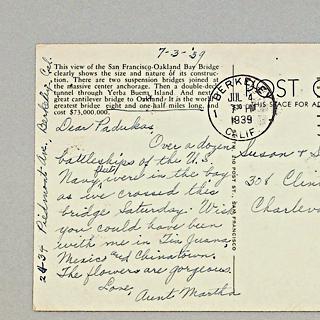 7-3-'39
This view of the San Francisco-Oakland Bay Bridge
clearly shows the size and nature of its construc-
tion. There are two suspension bridges joined at
the massive center anchorage. Then a double-deck
tunnel through Yerba Buena Island. And next the
great cantilever bridge to Oakland. It is the world's
greatest bridge eight and one-half miles long, and
cost $75,000,000.
Dear Padukas,
Over a dozen
battleships of the U.S.
Navy fleet were in the bay
as we crossed this
bridge Saturday. Wish
you could have been
with me in Tia Juana,
Mexico and Chinatown.
The flowers are gorgeous.
Love,
Aunt Martha
2434 Piedmont Ave., Berkeley Cal.
BERKELEY
JUL 4
PM
1939
CALIF
POST
THIS SPACE FOR AD
Susan &
308 Clin
Charlevo
SAN FRANCISCO